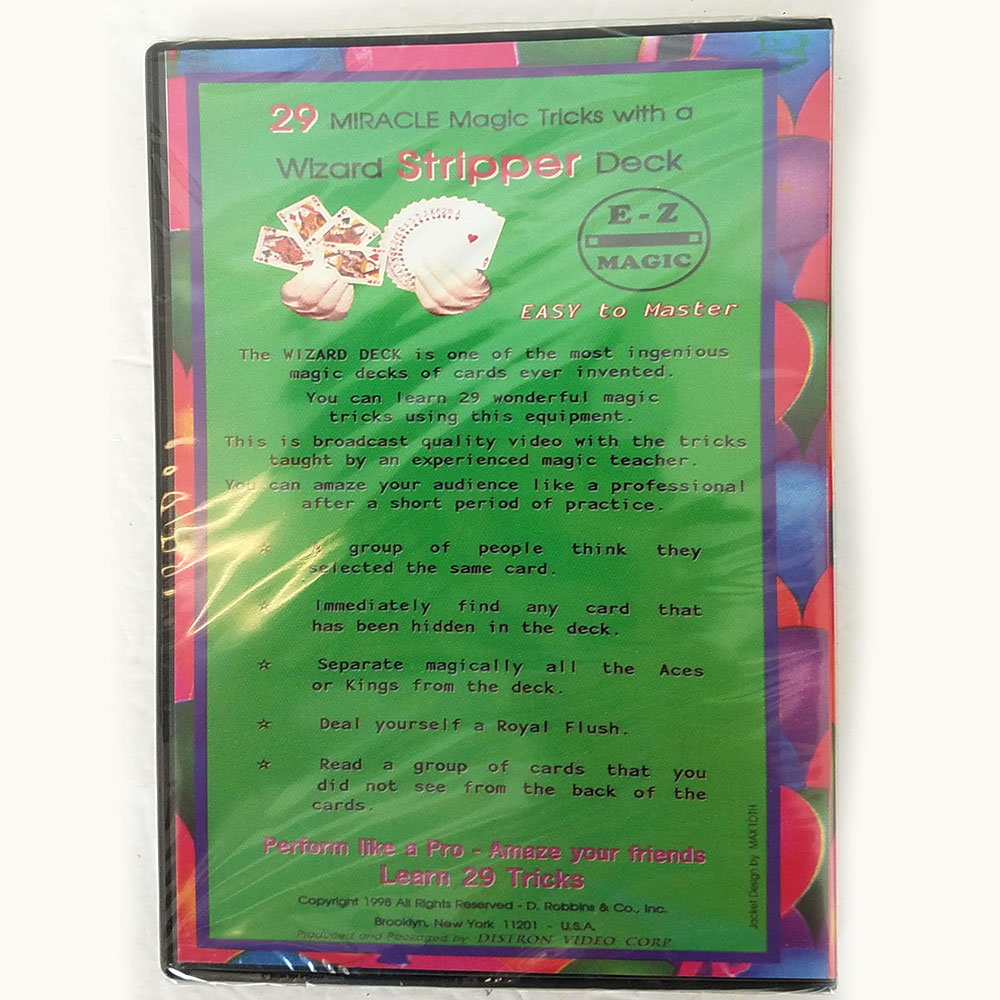 29 MIRACLE Magic Tricks with a
Wizard Stripper Deck
E-Z
MAGIC
EASY to Master
The WIZARD DECK is one of the most ingenious
magic decks of cards ever invented.
You can learn 29 wonderful magic
tricks using this equipment.
This is broadcast quality video with the tricks
taught by an experienced magic teacher.
You can amaze your audience like a professional
after a short period of practice.
☆ A group of people think they
selected the same card.
☆ Immediately find any card that
has been hidden in the deck.
☆ Separate magically all the Aces
or Kings from the deck.
☆ Deal yourself a Royal Flush.
☆ Read a group of cards that you
did not see from the back of the
cards.
Perform like a Pro - Amaze your friends
Learn 29 Tricks
Copyright 1998 All Rights Reserved - D. Robbins & Co., Inc.
Brooklyn, New York 11201 - U.S.A.
Produced and Packaged by DISTRON VIDEO CORP.
Jacket Design by MAX TOTH